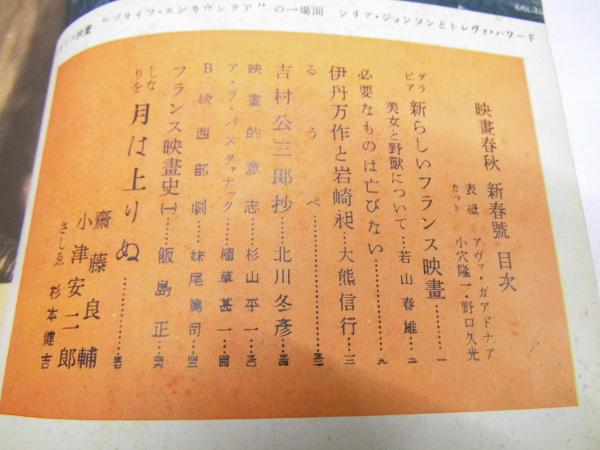 “ブリイフ・エンカウンタア”の一場面　シリア・ジョンソンとトレヴァ・ハワード
映畫春秋　新春號　目次
表紙　アヴァ・ガアドナア
カット　小穴隆一・野口久光
グラビア　新らしいフランス映畫……一
美女と野獸について……若山春雄…二
必要なものは亡びない……九
伊丹万作と岩崎昶……大熊信行…三
るうぺ
吉村公三郎抄……北川冬彥
映畫的意志……杉山平一
ア・ラ・バスタァナック……植草甚一
B級西部劇……妹尾篤司
フランス映畫史（一）……飯島正
しなりを　月は上りぬ
齋藤良輔
小津安二郎
さしゑ　杉本健吉